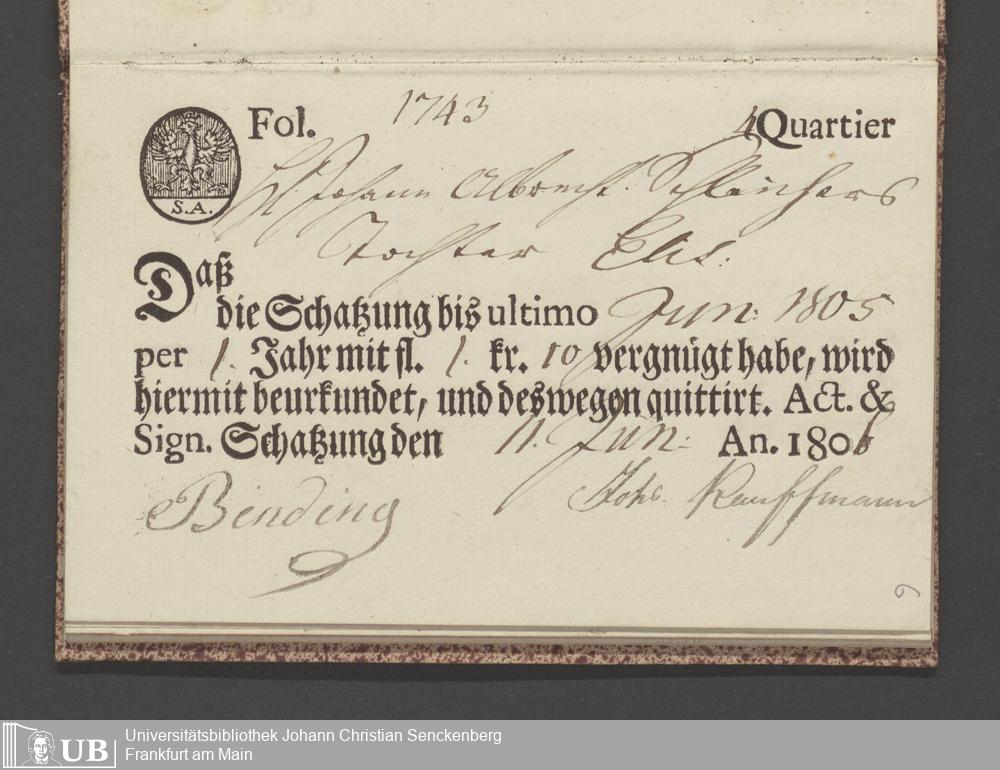 Fol. 1743 4 Quartier
S.A.
Johann Albrecht Schleichers
Tochter Elis.
Daß
die Schatzung bis ultimo Jun: 1805
per 1. Jahr mit fl. 1. kr. 10 vergnügt habe, wird
hiermit beurkundet, und deswegen quittirt. Act. &
Sign. Schatzung den 11. Jun: An. 1806
Binding Johs. Kauffmann
6
UB Universitätsbibliothek Johann Christian Senckenberg
Frankfurt am Main